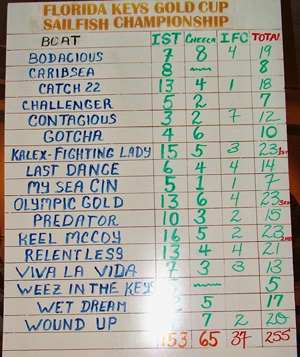 FLORIDA KEYS GOLD CUP
SAILFISH CHAMPIONSHIP
BOAT IST CHEECA IFC TOTAL
BODACIOUS 7 8 4 19
CARIBSEA 8 8
CATCH 22 13 4 1 18
CHALLENGER 5 2 7
CONTAGIOUS 3 2 7 12
GOTCHA 4 6 10
KALEX-FIGHTING LADY 15 5 3 23 1ST
LAST DANCE 6 4 4 14
MY SEA CIN 5 1 1 7
OLYMPIC GOLD 13 6 4 23 3RD
PREDATOR 10 3 2 15
KEEL MCCOY 16 5 2 23 2ND
RELENTLESS 13 4 4 21
VIVA LA VIDA 7 3 3 13
WEEZ IN THE KEYS 5
WET DREAM 5 17
WOUND UP 7 2 20
153 65 37 255